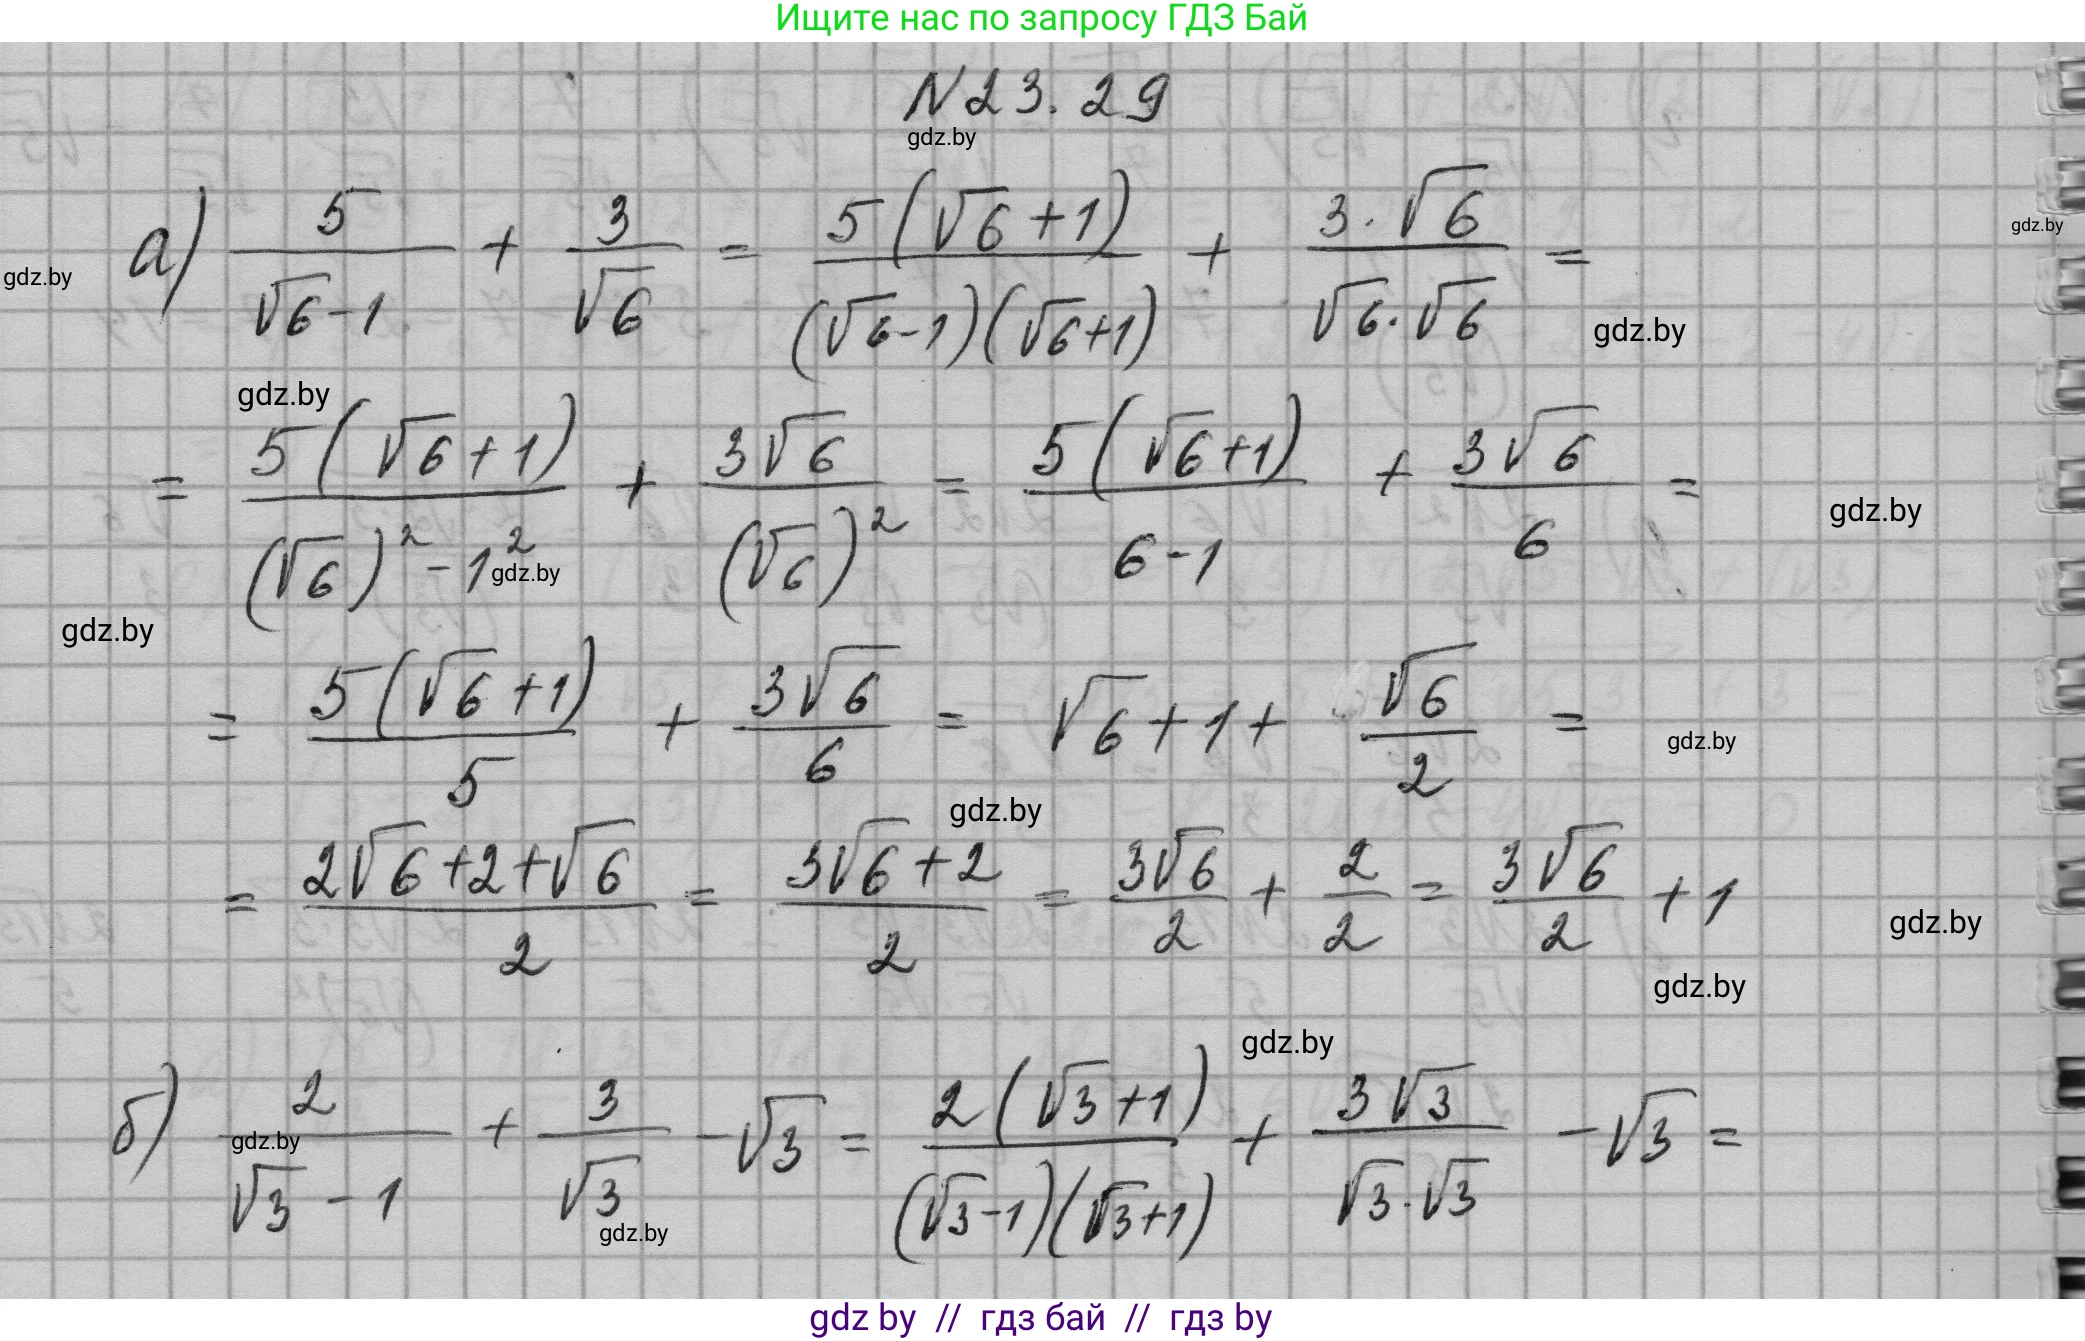 Ищите нас по запросу ГДЗ Бай
N 23.29
gdz.by
а) 5/(√6-1) + 3/√6 = 5(√6+1)/((√6-1)(√6+1)) + 3·√6/(√6·√6) =
gdz.by
gdz.by
gdz.by
gdz.by
= 5(√6+1)/((√6)²-1²) + 3√6/(√6)² = 5(√6+1)/(6-1) + 3√6/6 =
gdz.by
gdz.by
gdz.by
= 5(√6+1)/5 + 3√6/6 = √6+1+ √6/2 =
gdz.by
gdz.by
= (2√6+2+√6)/2 = (3√6+2)/2 = 3√6/2 + 2/2 = 3√6/2 + 1
gdz.by
gdz.by
gdz.by
б) 2/(√3-1) + 3/√3 - √3 = 2(√3+1)/((√3-1)(√3+1)) + 3√3/(√3·√3) - √3 =
gdz.by
gdz.by
gdz by // гдз бай // гдз by